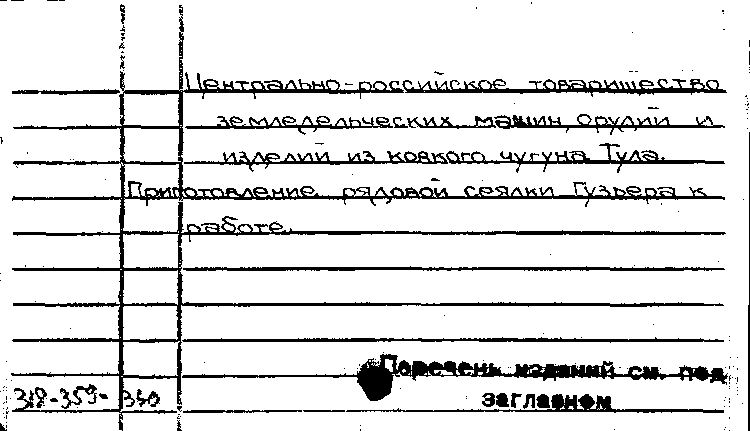 Центрально-российское товарищество
земледельческих машин, орудий и
изделий из ковкого чугуна Тула.
Приготовление рядовой сеялки Гузьера к
работе.
Перечень изданий см. под
318-359- 340 заглавием